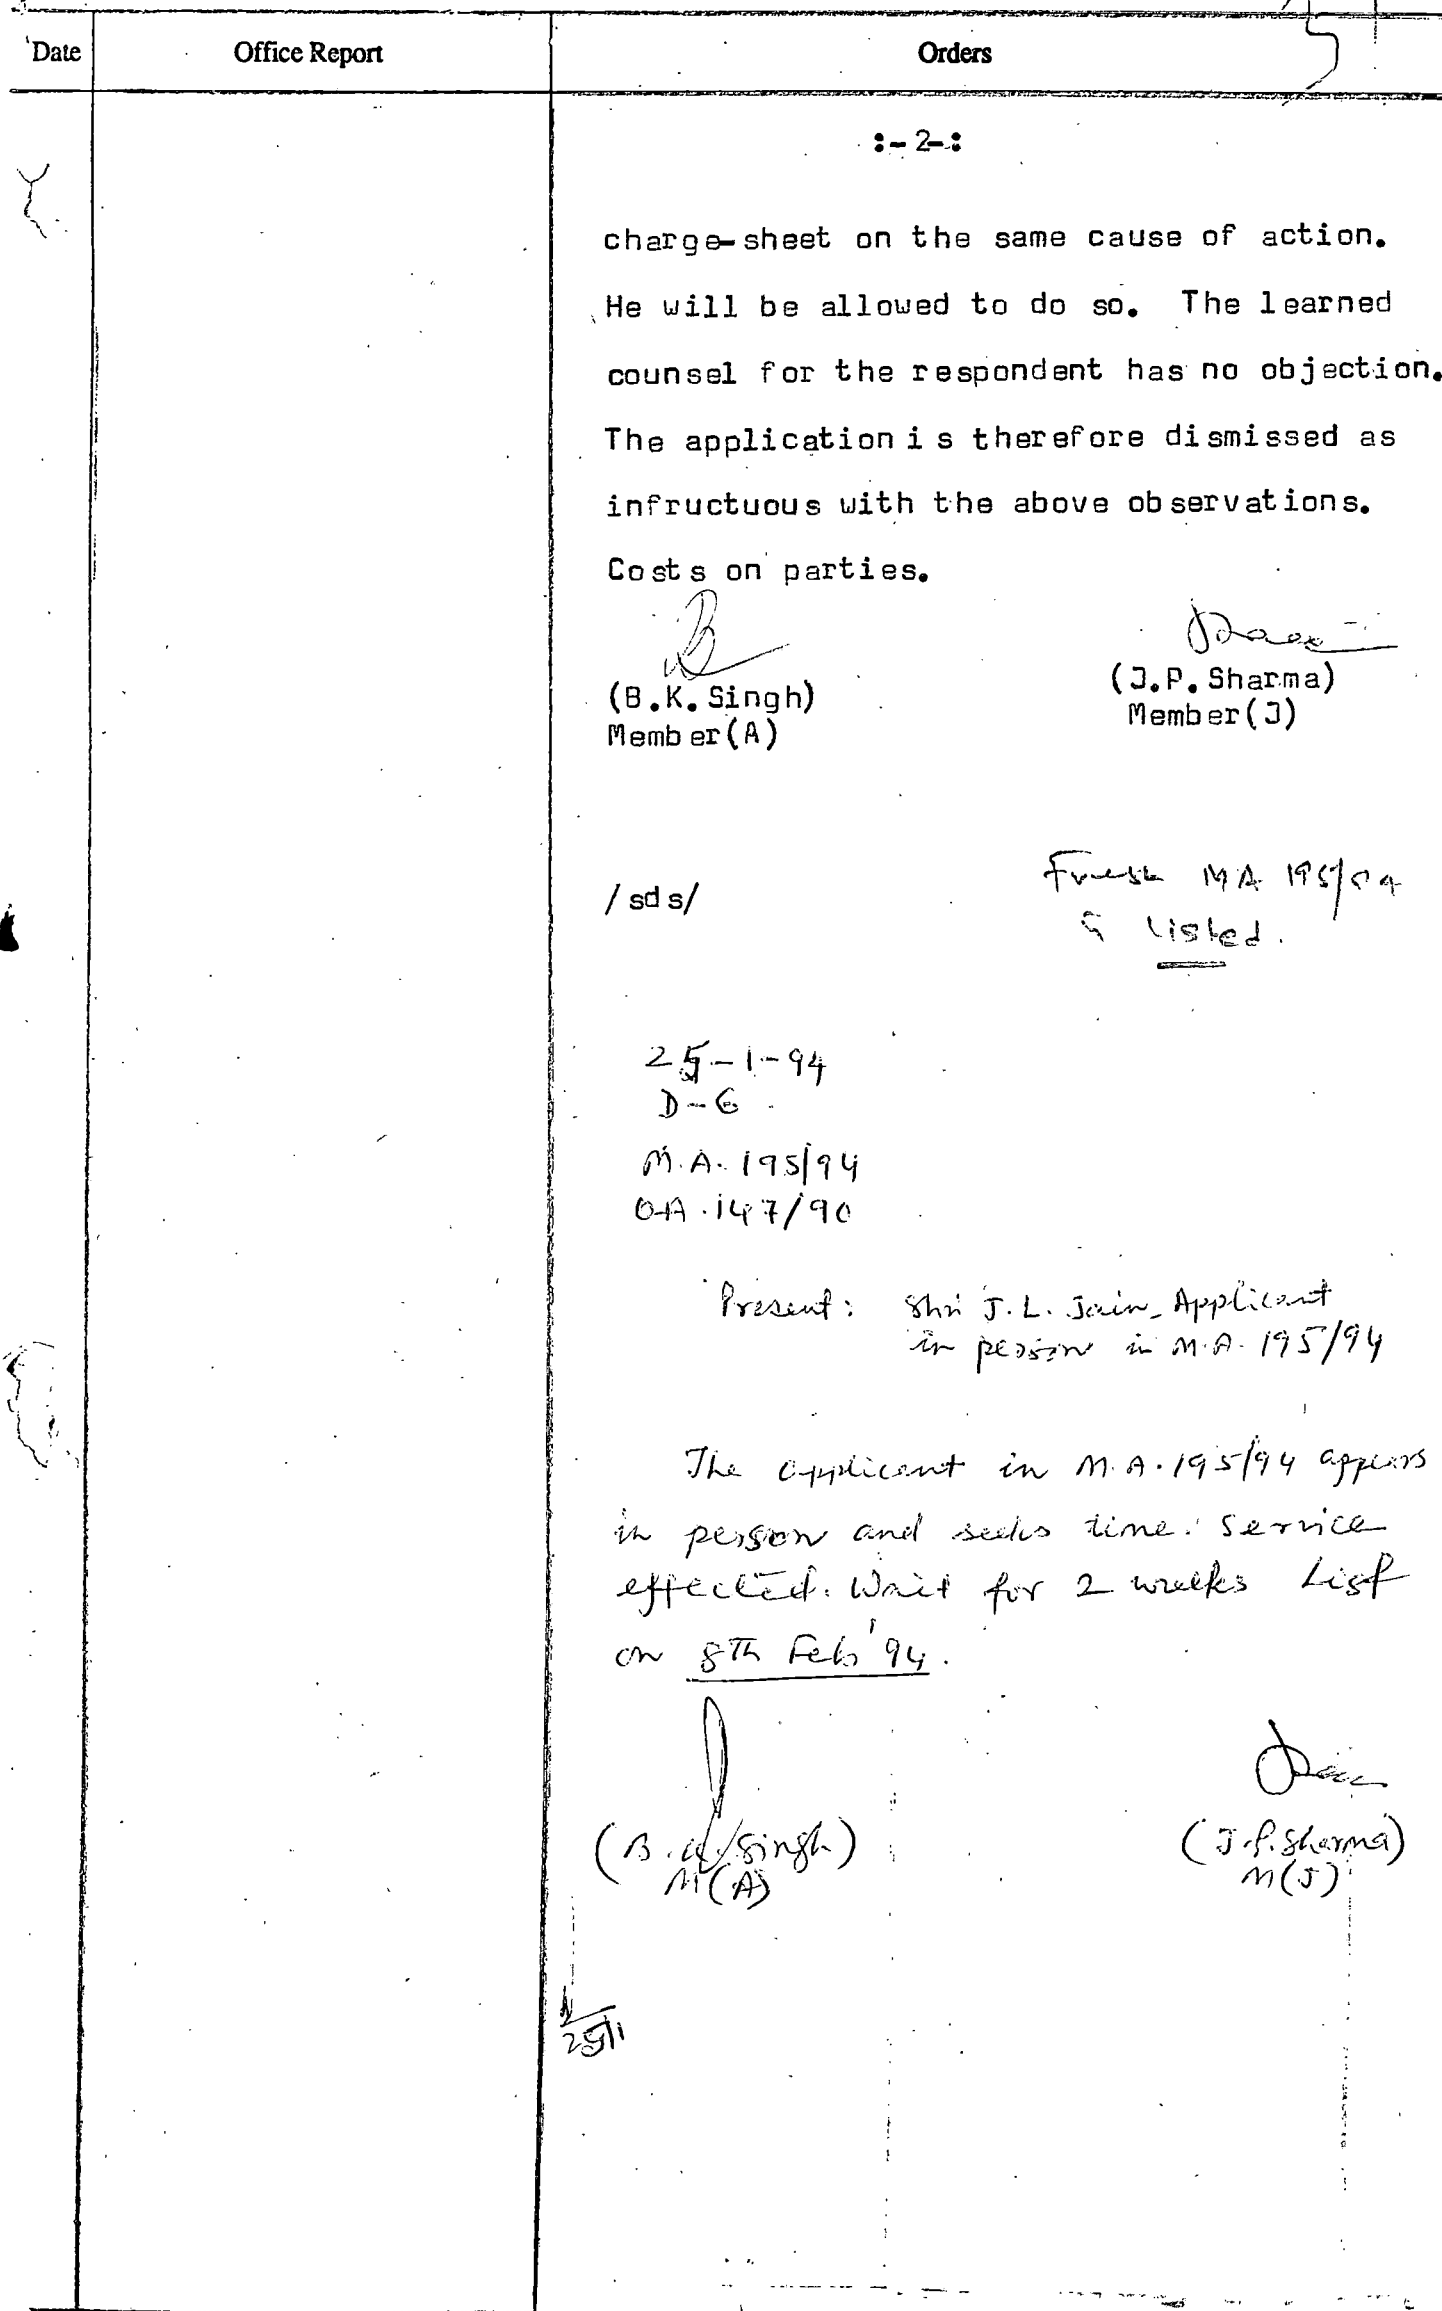 Date Office Report Orders
:-2-:
charge-sheet on the same cause of action.
He will be allowed to do so. The learned
counsel for the respondent has no objection.
The application is therefore dismissed as
infructuous with the above observations.
Costs on parties.
(B.K.Singh) (J.P.Sharma)
Member(A) Member(J)
/sds/
Fresh MA 195/94
is listed.
25-1-94
D-6
M.A. 195/94
OA.147/90
Present: Shri J.L. Jain, Applicant
in person in M.A. 195/94
The applicant in M.A. 195/94 appears
in person and seeks time. Service
effected. Wait for 2 weeks List
on 8th Feb '94.
(B.K. Singh) (J.P. Sharma)
M(A) M(J)
25/1